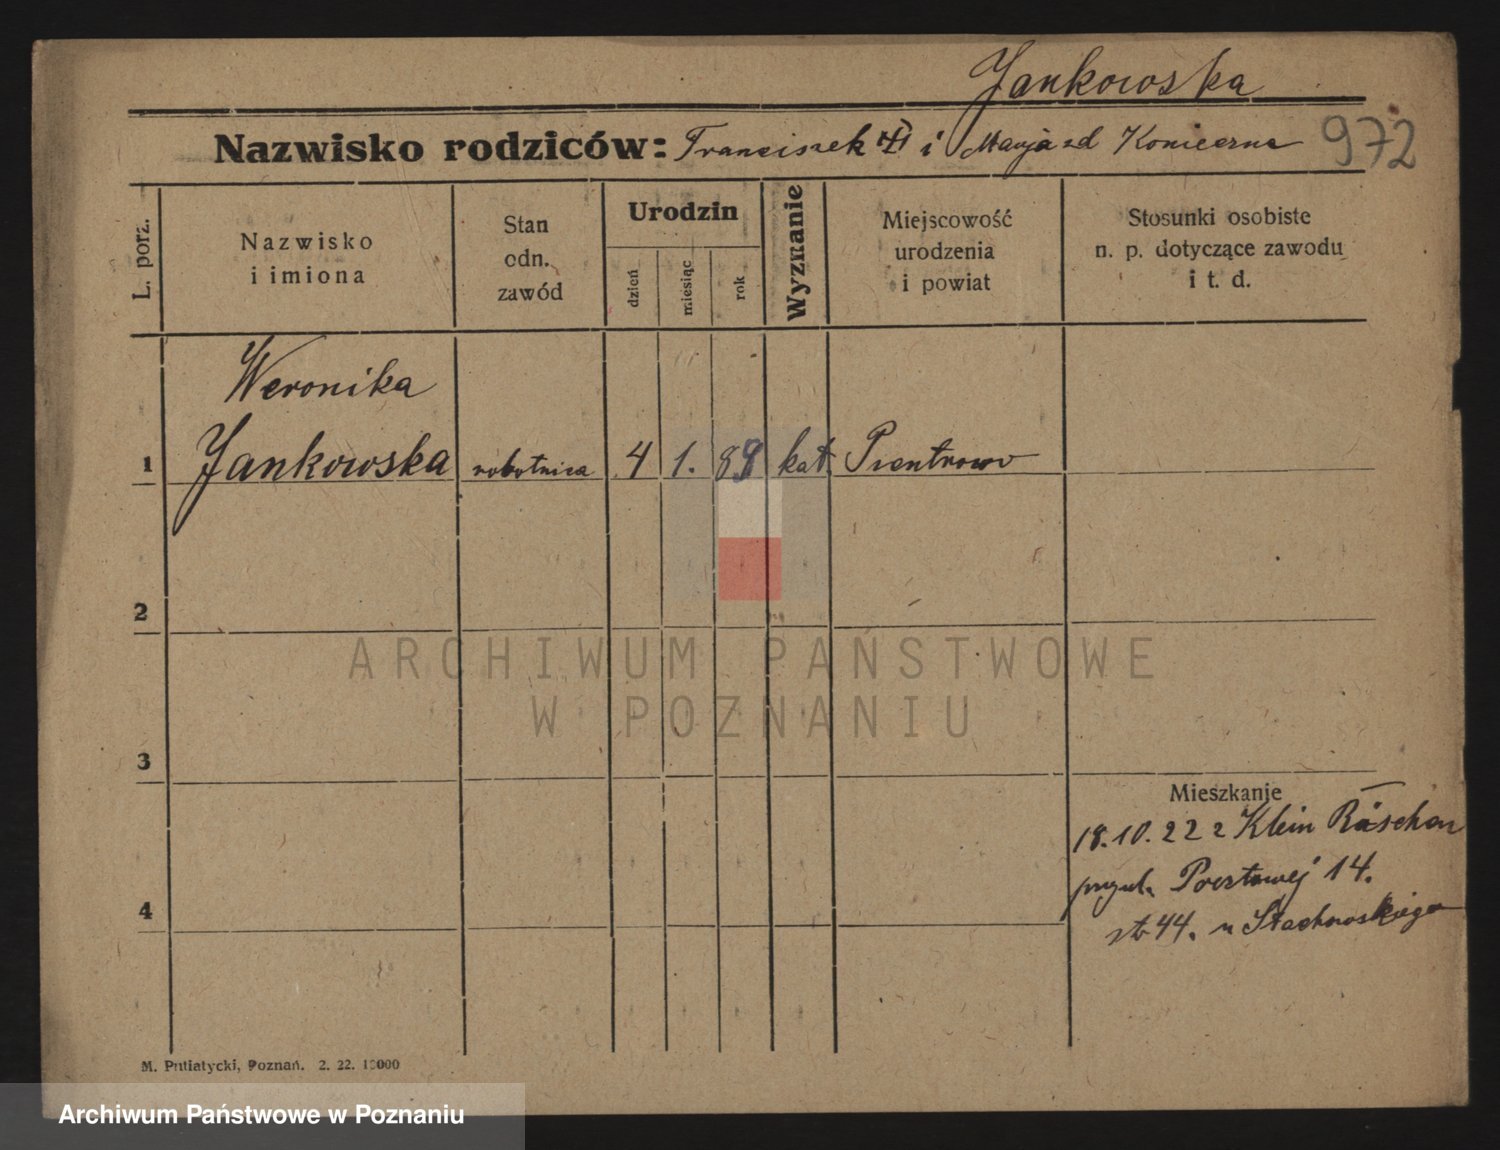 Jankowska
Nazwisko rodziców: Franciszek i Marja zd Konieczna 972
L. porz.
Nazwisko
i imiona
Stan
odn.
zawód
Urodzin
dzień
miesiąc
rok
Wyznanie
Miejscowość
urodzenia
i powiat
Stosunki osobiste
n. p. dotyczące zawodu
i t. d.
Weronika
1 Jankowska robotnica 4 1. 89 kat.
2
3
4
Mieszkanie
18.10.22 z Klein Räschen
14.
44. u Stachowskiego
M. Putiatycki, Poznań. 2. 22. 10000
ARCHIWUM PAŃSTWOWE
W POZNANIU
Archiwum Państwowe w Poznaniu